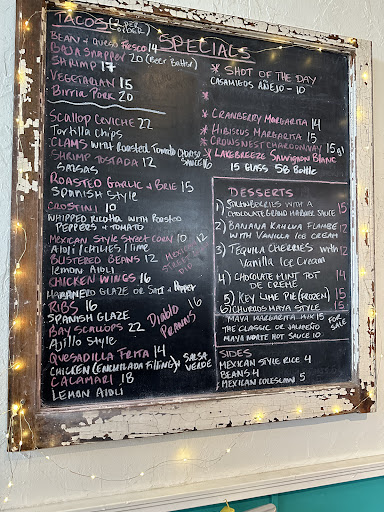 TACOS (2 PER ORDER)
SPECIALS
BEAN & QUESO FRESCO 14
BAJA SNAPPER 20 (BEER BATTER)
SHRIMP 17
VEGETARIAN 15
BIRRIA PORK 20
SCALLOP CEVICHE 22
TORTILLA CHIPS
CLAMS WITH ROASTED TOMATO CHORIZO SAUCE 16
SHRIMP TOSTADA 12
SALSAS
ROASTED GARLIC & BRIE 15
SPANISH STYLE
CROSTINI 10
WHIPPED RICOTTA WITH ROASTED
PEPPERS & TOMATO
MEXICAN STYLE STREET CORN 10
AIOLI / CHILIES / LIME
BLISTERED BEANS 12
LEMON AIOLI
CHICKEN WINGS 16
HABANERO GLAZE OR SALT & PEPPER
RIBS 16
SPANISH GLAZE
BAY SCALLOPS 22
AJILLO STYLE
DIABLO PRAWNS 16
QUESADILLA FRITA 14
CHICKEN (ENCHILADA FILLING) & SALSA VERDE
CALAMARI 18
LEMON AIOLI
* SHOT OF THE DAY
CASAMIGOS AÑEJO - 10
* CRANBERRY MARGARITA 14
* HIBISCUS MARGARITA 15
* CROWSNEST CHARDONNAY 15 gl
* LAKEBREEZE SAUVIGNON BLANC
15 GLASS 58 BOTTLE
DESSERTS
1) STRAWBERRIES WITH A 15
CHOCOLATE GRAND MARNIER SAUCE
2) BANANA KAHLUA FLAMBE 12
WITH VANILLA ICE CREAM
3) TEQUILA CHERRIES WITH 12
VANILLA ICE CREAM
4) CHOCOLATE MINT POT 14
DE CREME
5) KEY LIME PIE (FROZEN) 15
6) CHURROS MAYA STYLE 15
MAYA MARGARITA MIX 15
THE CLASSIC OR JALAPEÑO
MAYA NORTE HOT SAUCE 10
FOR SALE
SIDES
MEXICAN STYLE RICE 4
BEANS 4
MEXICAN COLESLAW 5